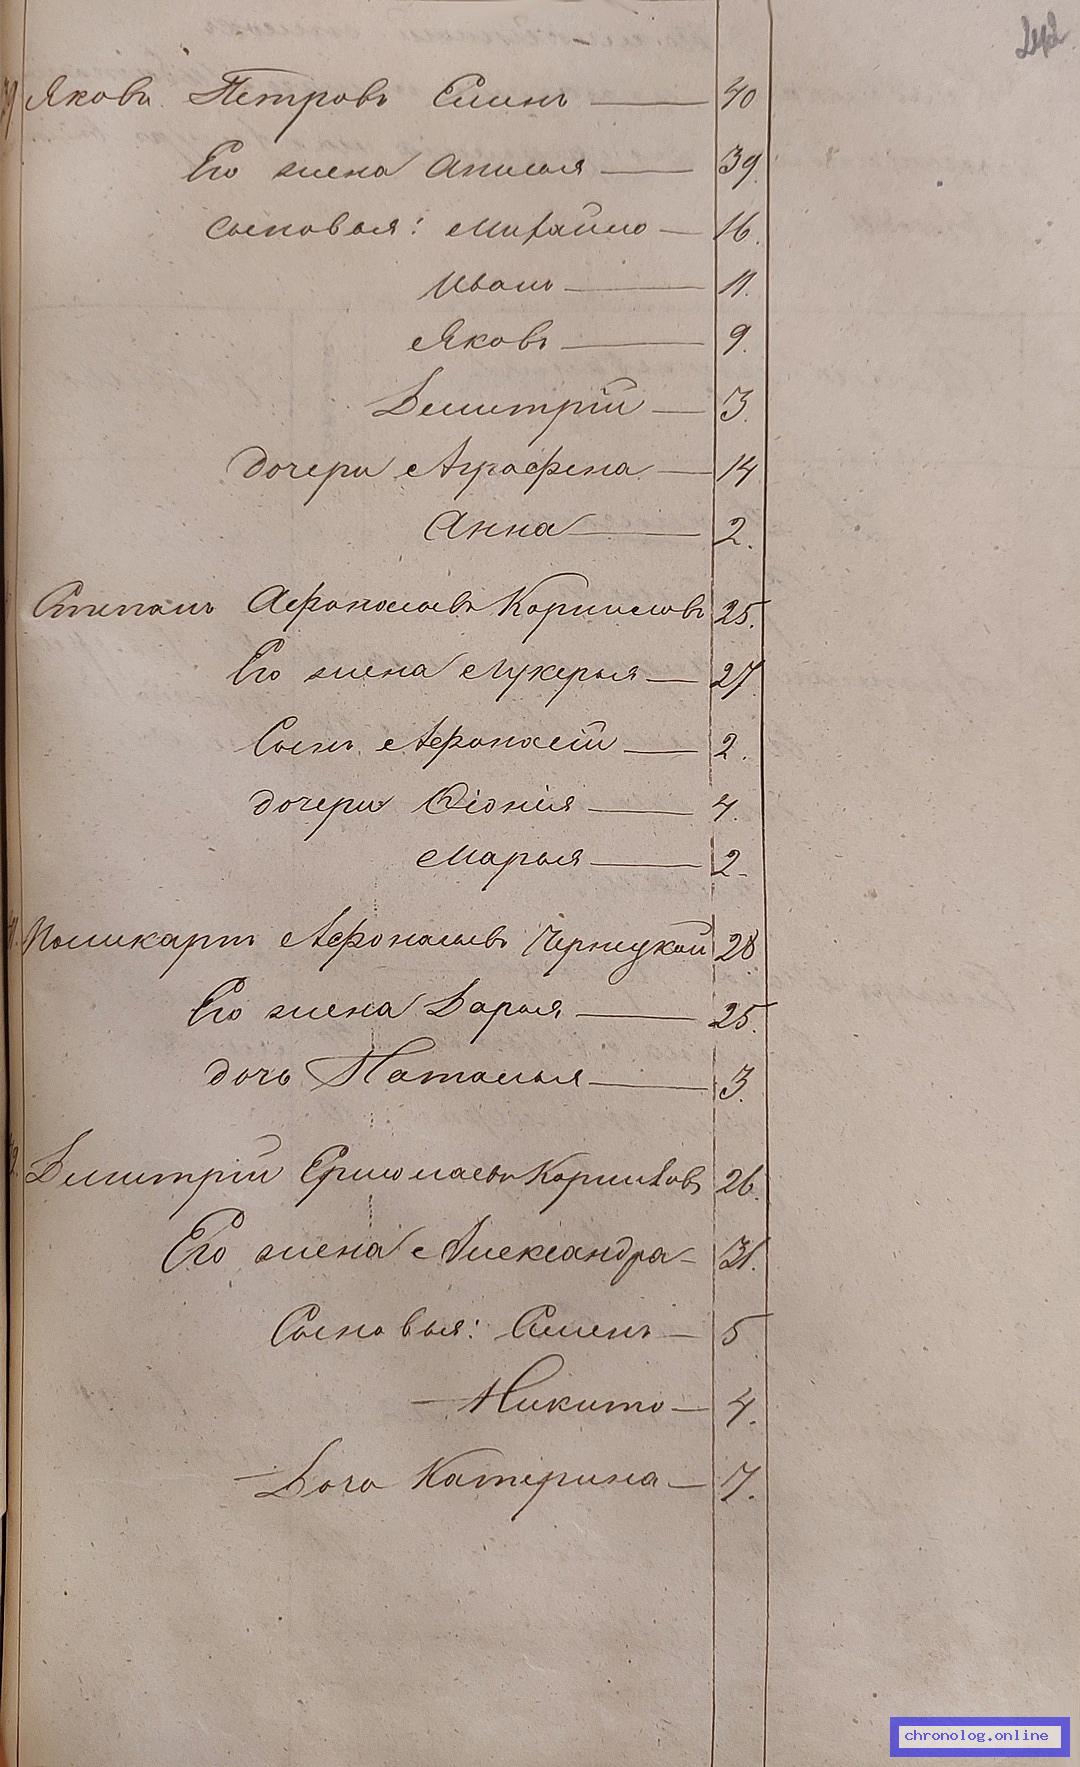 242
39 Яковъ Петровъ Еминъ — 40
Его жена Апилья — 39.
сыновья: Михайло — 16.
Иванъ — 11.
Яковъ — 9.
Димитрій — 3.
дочери Аграфена — 14
Анна — 2.
Степанъ Афонасьевъ Корниловъ 25.
Его жена Лукерья — 27
Сынъ Афонасій — 2.
дочери Фіонія — 4.
Марья — 2.
Поликарпъ Афонасьевъ 28
Его жена Дарья — 25.
дочь Наталья — 3.
Димитрій Ермолаевъ Корниловъ 26.
Его жена Александра — 31.
Сыновья: Семенъ — 5
— Никито — 4.
— Доч Катерина — 7.
chronolog.online